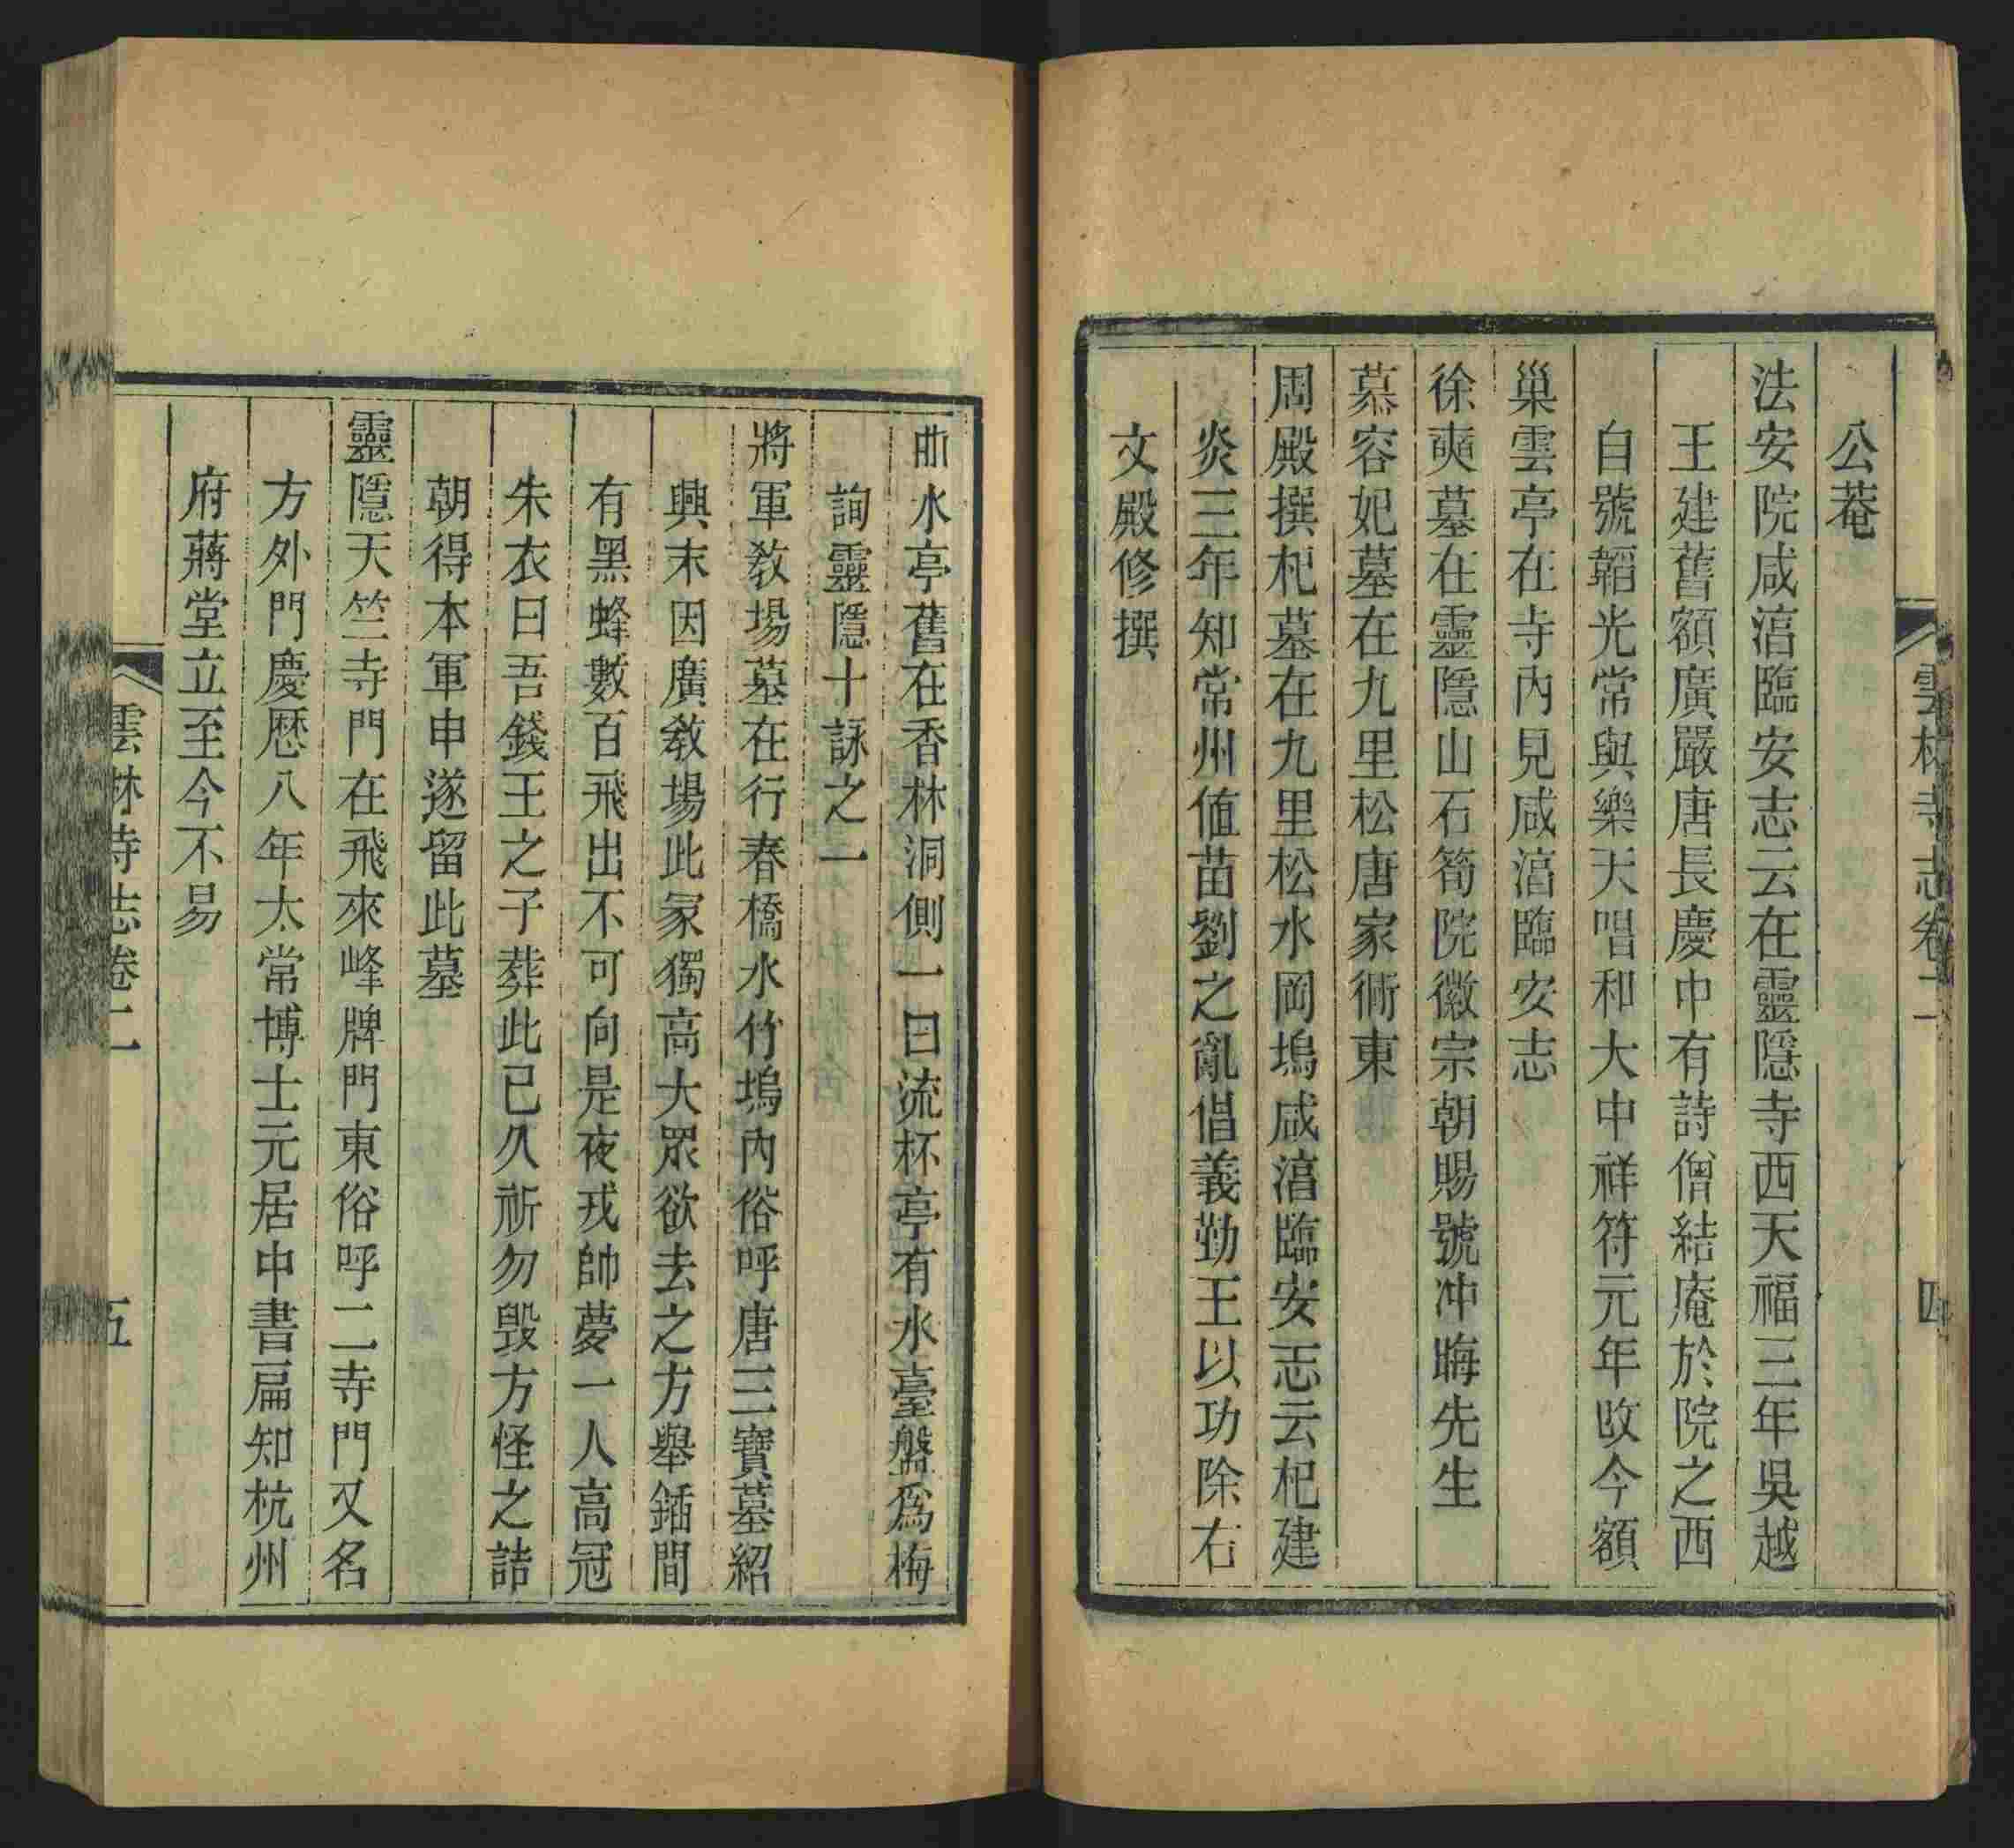 雲林寺志卷二 四
公菴
法安院咸淳臨安志云在靈隱寺西天福三年吳越
王建舊額廣嚴唐長慶中有詩僧結庵於院之西
自號韜光常與樂天唱和大中祥符元年改今額
巢雲亭在寺內見咸淳臨安志
徐奭墓在靈隱山石筍院徽宗朝賜號冲晦先生
慕容妃墓在九里松唐家衕東
周殿撰杞墓在九里松水岡塢咸淳臨安志云杞建
炎三年知常州值苗劉之亂倡義勤王以功除右
文殿修撰
曲水亭舊在香林洞側一曰流杯亭有水臺盤爲梅
詢靈隱十詠之一
將軍教場墓在行春橋水竹塢內俗呼唐三寶墓紹
興末因廣教場此冢獨高大眾欲去之方舉鍤間
有黑蜂數百飛出不可向是夜戎帥夢一人高冠
朱衣曰吾錢王之子葬此已久祈勿毀方怪之詰
朝得本軍申遂留此墓
靈隱天竺寺門在飛來峰牌門東俗呼二寺門又名
方外門慶歷八年太常博士元居中書扁知杭州
府蔣堂立至今不易
雲林寺志卷二 五